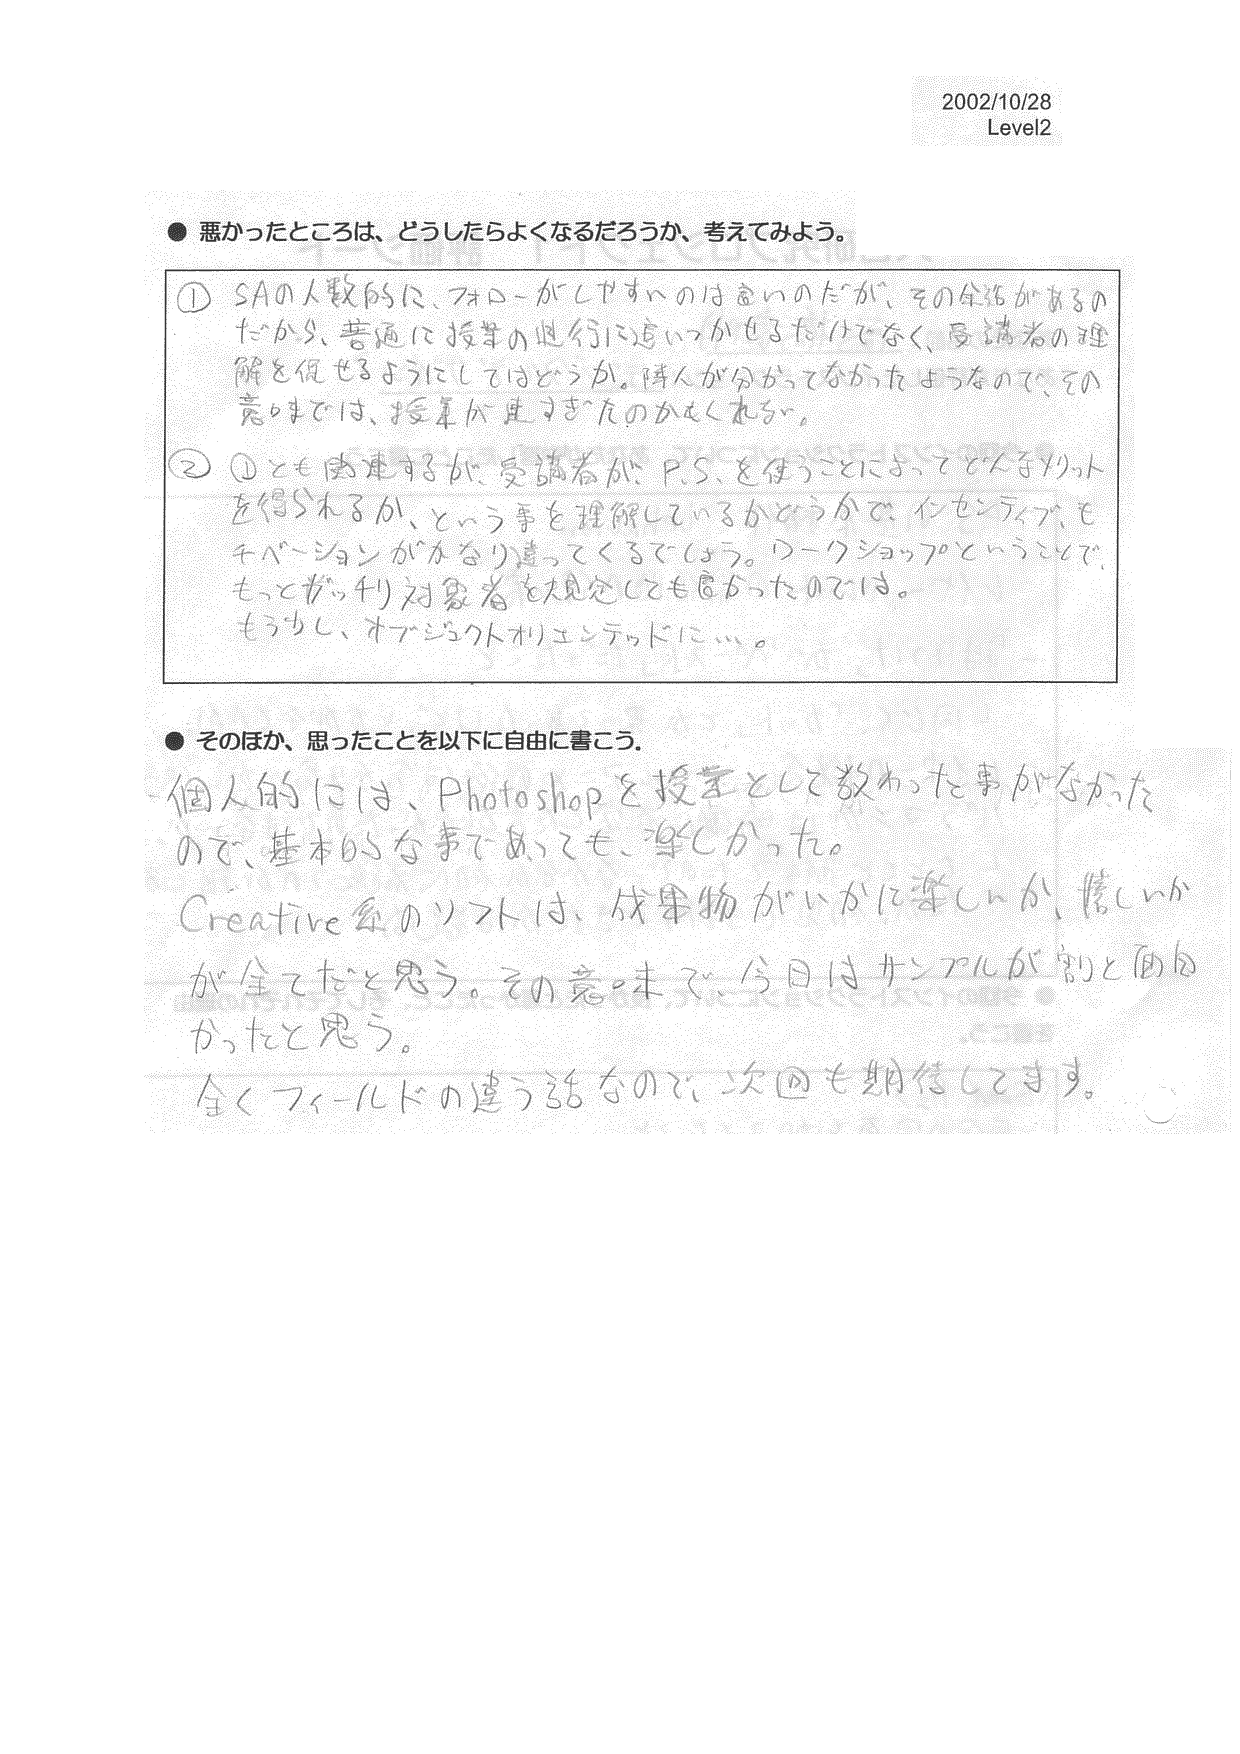 2002/10/28
Level2
● 悪かったところは、どうしたらよくなるだろうか、考えてみよう。
① SAの人数的に、フォローがしやすいのは良いのだが、その余裕があるの
だから、普通に授業の進行に追いつかせるだけでなく、受講者の理
解を促せるようにしてはどうか。隣人が分かってなかったようなので、その
意味では、授業が速すぎたのかもしれない。
② ①とも関連するが、受講者が、P.S.を使うことによってどんなメリット
を得られるか、という事を理解しているかどうかで、インセンティブ、モ
チベーションがかなり違ってくるでしょう。ワークショップということで、
もっとガッチリ対象者を規定しても良かったのでは。
もう少し、オブジェクトオリエンテッドに…。
● そのほか、思ったことを以下に自由に書こう。
個人的には、Photoshopを授業として教わった事がなかった
ので、基本的な事であっても、楽しかった。
Creative系のソフトは、成果物がいかに楽しいか、嬉しいか
が全てだと思う。その意味で、今日はサンプルが割と面白
かったと思う。
全くフィールドの違う話なので、次回も期待してます。